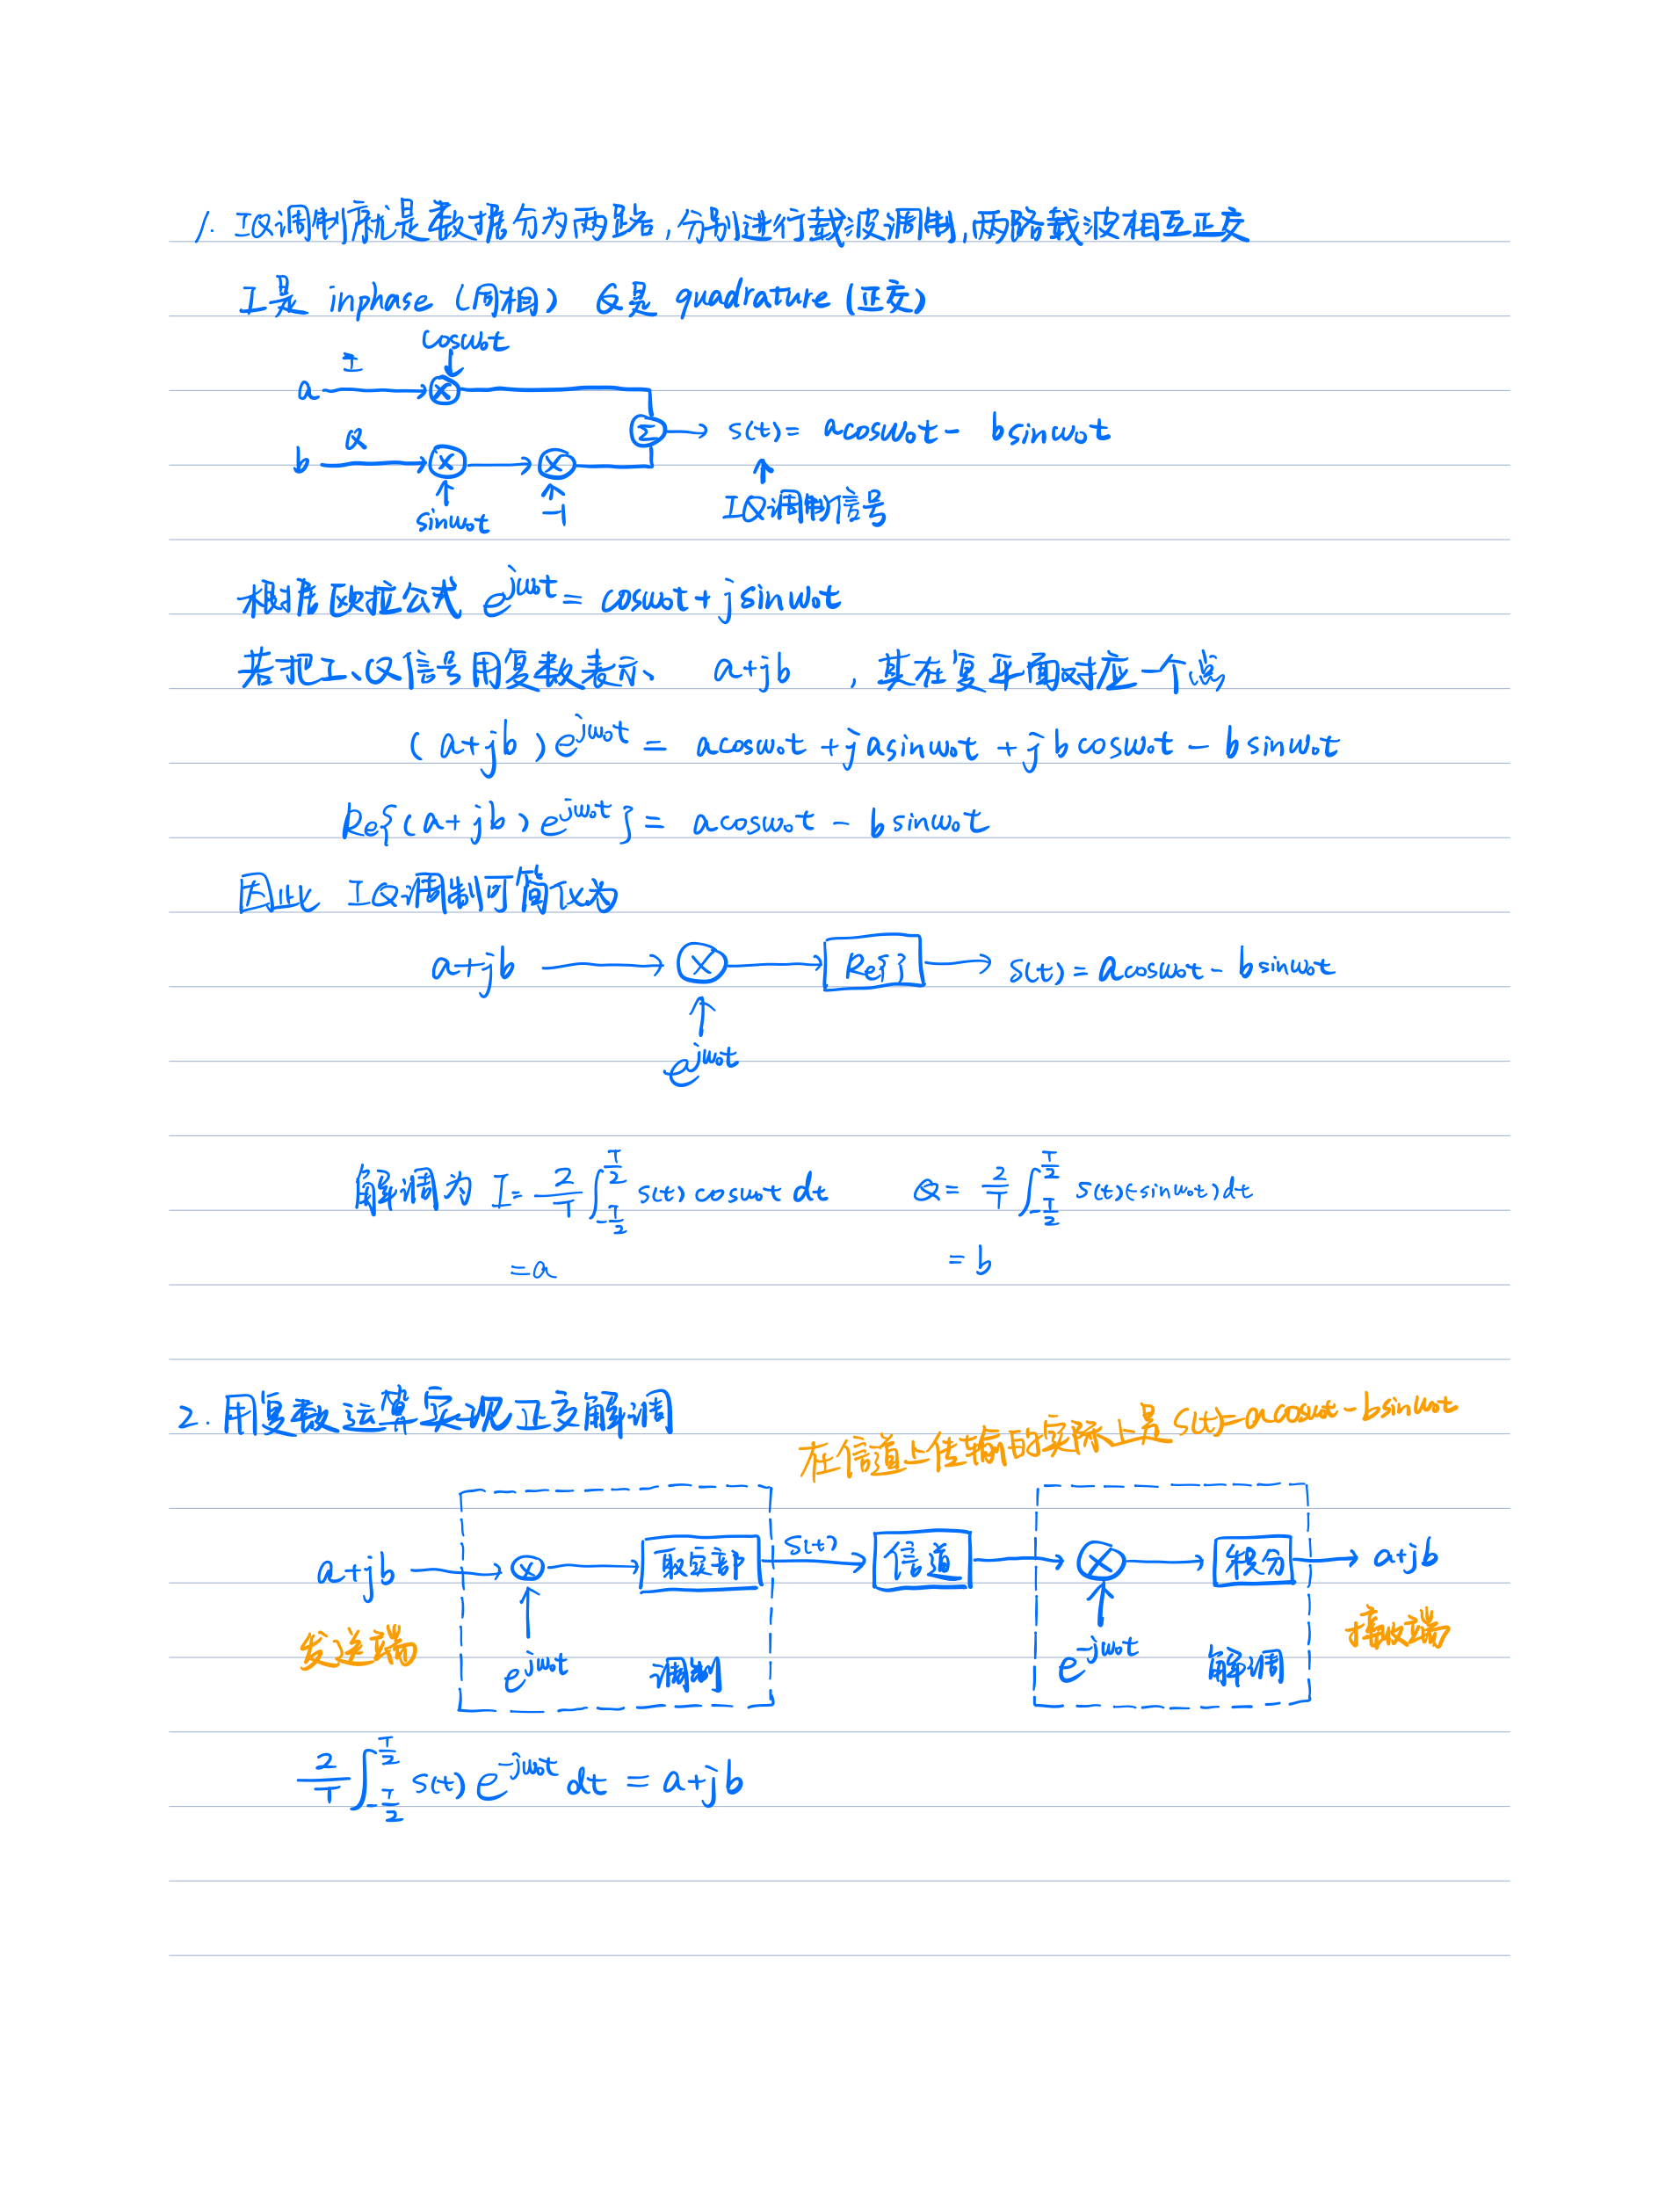 1. IQ调制就是数据分为两路,分别进行载波调制,两路载波相互正交
I是 inphase (同相) Q是 quadrature (正交)
cosω₀t
a I ⊗
Σ → s(t)= acosω₀t - bsinω₀t
b Q ⊗ ⊗
sinω₀t -1 IQ调制信号
根据欧拉公式 e^{jω₀t} = cosω₀t + jsinω₀t
若把I、Q信号用复数表示、 a+jb ,其在复平面对应一个点
(a+jb)e^{jω₀t} = acosω₀t + jasinω₀t + jbcosω₀t - bsinω₀t
Re{(a+jb)e^{jω₀t}} = acosω₀t - bsinω₀t
因此 IQ调制可简仪为
a+jb → ⊗ → Re{} → s(t) = acosω₀t - bsinω₀t
e^{jω₀t}
解调为 I = \frac{2}{T}∫_{-\frac{T}{2}}^{\frac{T}{2}} s(t)cosω₀t dt Q = \frac{2}{T}∫_{-\frac{T}{2}}^{\frac{T}{2}} s(t)(-sinω₀t)dt
=a = b
2.用复数运算实现正交解调
在信道上传输的实际上是 s(t)=acosω₀t - bsinω₀t
a+jb → ⊗ → 取实部 s(t) → 信道 → ⊗ → 积分 → a+jb
发送端 接收端
e^{jω₀t} 调制 e^{-jω₀t} 解调
\frac{2}{T}∫_{-\frac{T}{2}}^{\frac{T}{2}} s(t)e^{-jω₀t}dt = a+jb